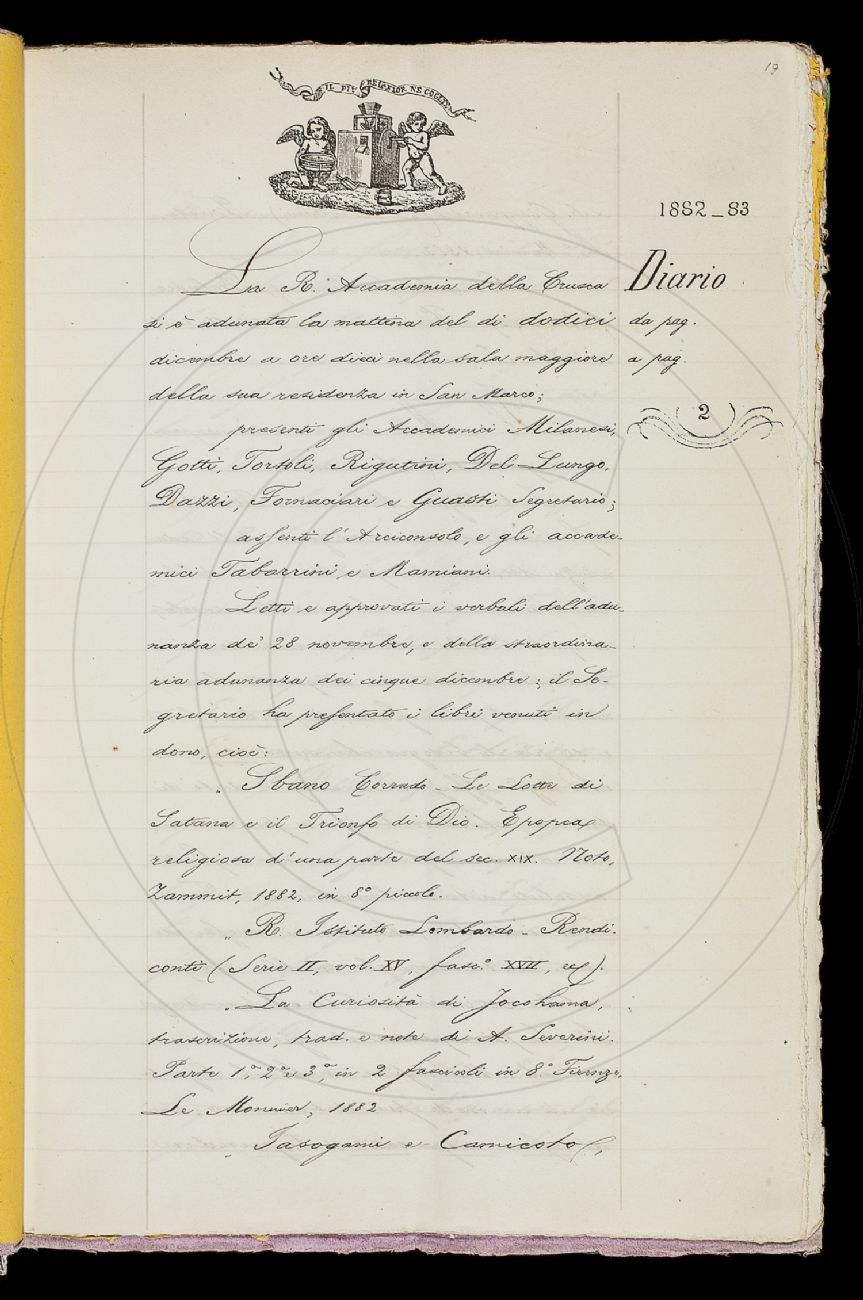 IL PIÙ BEL FIOR NE COGLIE
19
1882_83
Diario
da pag.
a pag.
2
La R. Accademia della Crusca
si è adunata la mattina del di dodici
dicembre a ore dieci nella sala maggiore
della sua residenza in San Marco;
presenti gli Accademici Milanesi,
Gotti, Tortoli, Rigutini, Del-Lungo,
Dazzi, Fornaciari e Guasti Segretario;
assenti l'Arciconsolo, e gli accade-
mici Tabarrini e Mamiani.
Letti e approvati i verbali dell'adu-
nanza de' 28 novembre, e della straordina-
ria adunanza dei cinque dicembre; il Se-
gretario ha presentato i libri venuti in
dono, cioè:
„ Sbano Corrado - Le Lotte di
Satana e il Trionfo di Dio. Epopea
religiosa d'una parte del sec. XIX. Noto,
Zammit, 1882, in 8° piccolo.
„ R. Istituto Lombardo - Rendi-
conti (Serie II, vol. XV, fasc.° XVII, ).
„ La Curiosità di Jocohama,
trascrizione, trad. e note di A. Severini.
Parte 1ª, 2ª e 3ª, in 2 fascicoli in 8° Firenze,
Le Monnier, 1882
„ Jasogami e Camicoto,